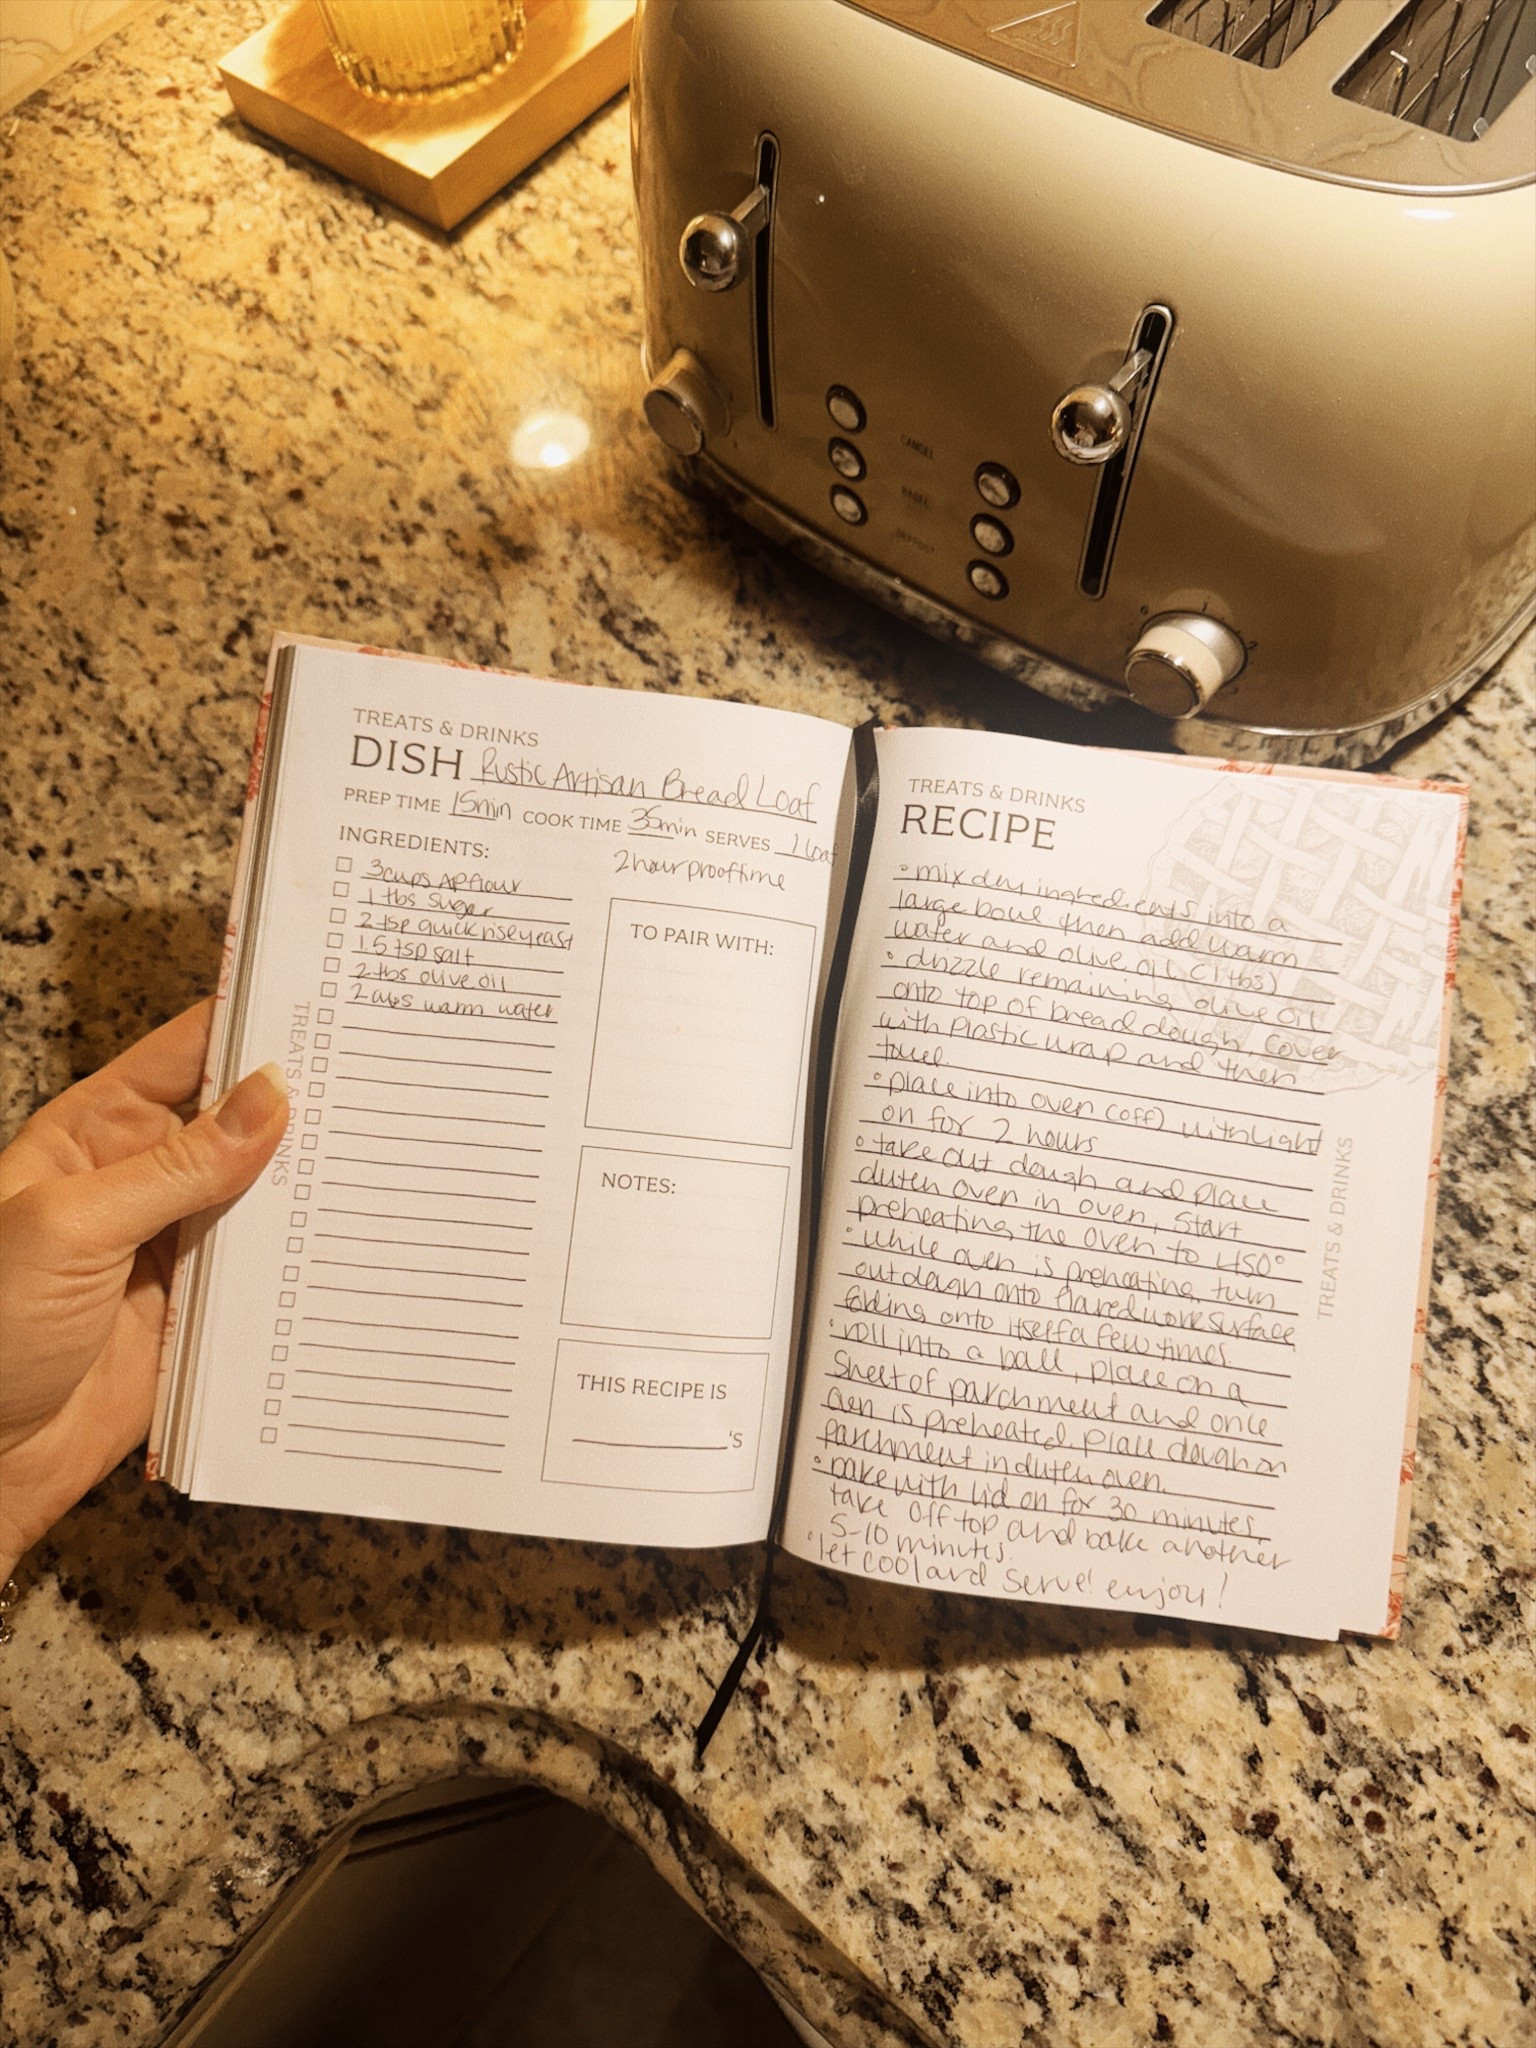 CANCEL
BAGEL
DEFROST
TREATS & DRINKS
DISH Rustic Artisan Bread Loaf
PREP TIME 15min COOK TIME 35min SERVES 1 loaf
2 hour proof time
INGREDIENTS:
3 cups AP flour
1 tbs sugar
2 tsp quick rise yeast
1.5 tsp salt
2 tbs olive oil
2 cups warm water
TO PAIR WITH:
NOTES:
THIS RECIPE IS
'S
TREATS & DRINKS
TREATS & DRINKS
RECIPE
° mix dry ingredients into a
large bowl then add warm
water and olive oil (1 tbs)
° drizzle remaining olive oil
onto top of bread dough, cover
with plastic wrap and then
towel.
° place into oven (off) with light
on for 2 hours
° take out dough and place
duten oven in oven, start
preheating the oven to 450°
° while oven is preheating, turn
out dough onto flared work surface
folding onto itself a few times.
° roll into a ball, place on a
sheet of parchment and once
oven is preheated, place dough on
parchment in duten oven.
° bake with lid on for 30 minutes,
take off top and bake another
5-10 minutes.
° let cool and serve! enjoy!
TREATS & DRINKS